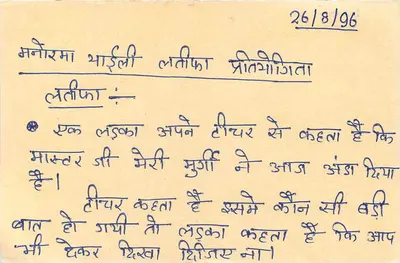 26/8/96
मनोरमा थाईली लतीफा प्रतियोगिता
लतीफा :-
* एक लड़का अपने टीचर से कहता है कि
मास्टर जी मेरी मुर्गी ने आज अंडा दिया
है।
टीचर कहता है इसमे कौन सी बड़ी
बात हो गयी तो लड़का कहता है कि आप
भी देकर दिखा दिजिए ना।